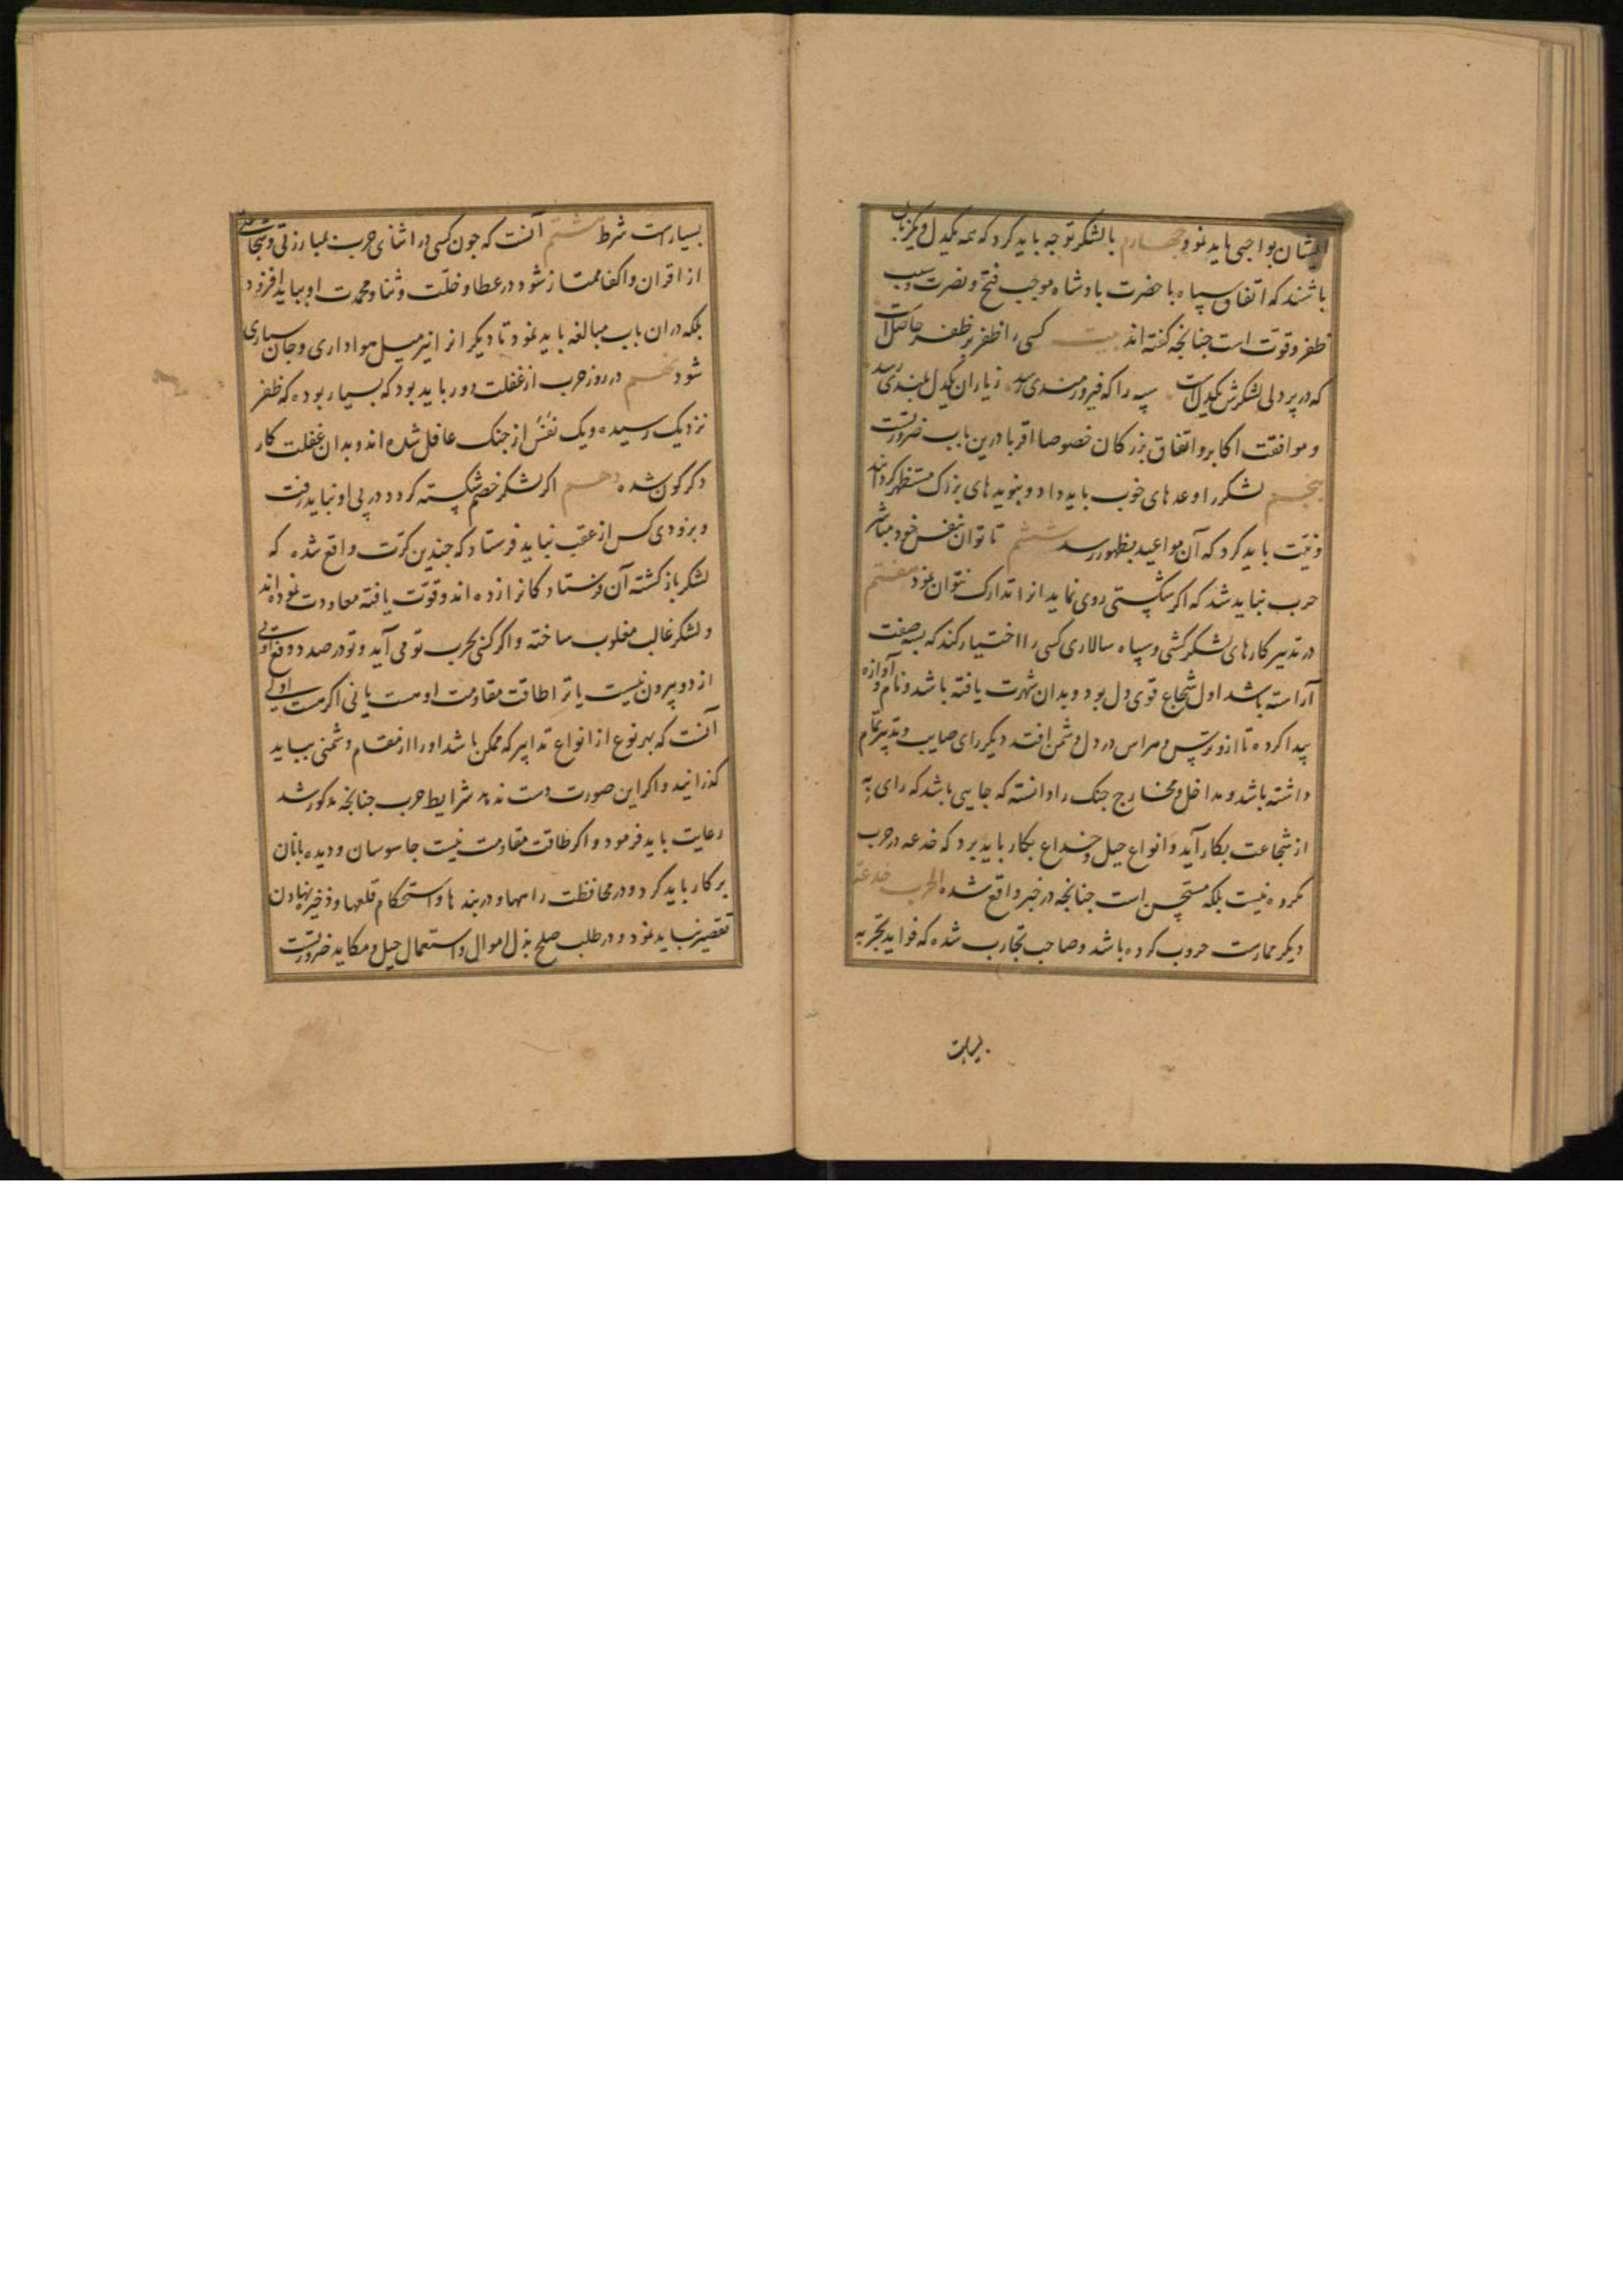 ایشان بواجبی باید نمود چهارم با لشکر توجه باید کرد که همه یکدل و یکزبان
باشند که اتفاق سپاه با حضرت پادشاه موجب فتح و نصرت و سبب
ظفر و قوت است چنانچه گفته اند بیت کسی را ظفر بر ظفر حاصل است
که در پر دلی لشکرش یکدل است سپه را که فیروزمندی رسد ز یاران یکدل بلندی رسد
و موافقت اکابر و اتفاق بزرکان خصوصا اقربا درین باب ضرورتست
پنجم لشکر را وعدهای خوب باید داد و بنویدهای بزرک مستظهر کردانند
و نیت باید کرد که آن مواعید بظهور رسد ششم تا توان بنفس خود مباشر
حرب نباید شد که اکر شکستی روی نماید انرا تدارک نتوان نمود هفتم
در تدبیر کارهای لشکرکشی و سپاه سالاری کسی را اختیار کند که بسه صفت
آراسته باشد اول شجاع قوی دل بود و بدان شهرت یافته باشد و نام و آوازه
پیدا کرده تا ازو ترس و هراس در دل دشمن افتد دیکر رای صایب و تدبیر تمام
داشته باشد و مداخل و مخارج جنک را دانسته که جایی باشد که رای به
از شجاعت بکار آید و انواع حیل و خداع بکار باید برد که خدعه در حرب
مکروه نیست بلکه مستحسن است جنانچه در خبر واقع شده الحرب خدعة
دیکر ممارست حروب کرده باشد و صاحب تجارب شده که فواید تجربه
بسیارست
بسیارست شرط هشتم آنست که جون کسی در اثنای حرب بمبارزتی و شجاعتی
از اقران و اکفا ممتاز شود در عطا و خلت و ثنا و محمدت او بباید افزود
بلکه در ان باب مبالغه باید نمود تا دیکرانرا نیز میل هواداری و جان سپاری
شود نهم در روز حرب از غفلت دور باید بود که بسیار بوده که ظفر
نزدیک رسیده و یک نفس از جنک غافل شده اند و بدان غفلت کار
دکرکون شده دهم اکر لشکر خصم شکسته کردد در پی او نباید رفت
و بزودی کس از عقب نباید فرستاد که جندین کرت واقع شده که
لشکر باز کشته آن فرستادکانرا زده اند و قوت یافته معاودت نموده اند
و لشکر غالب مغلوب ساخته و اکر کسی بحرب تو می آید و تو در صدد دفع اویی
از دو بیرون نیست یا ترا طاقت مقاومت او هست یا نی اکر هست اولی
آنست که بهر نوع از انواع تدابیر که ممکن باشد او را از مقام دشمنی بباید
کذرانید و اکر این صورت دست ندهد شرایط حرب جنانچه مذکور شد
رعایت باید فرمود و اکر طاقت مقاومت نیست جاسوسان و دیده بانان
بر کار باید کرد و در محافظت راهها و دربندها و استحکام قلعها و ذخیره نهادن
تقصیر نباید نمود و در طلب صلح بذل اموال و استعمال حیل و مکاید ضرورتست